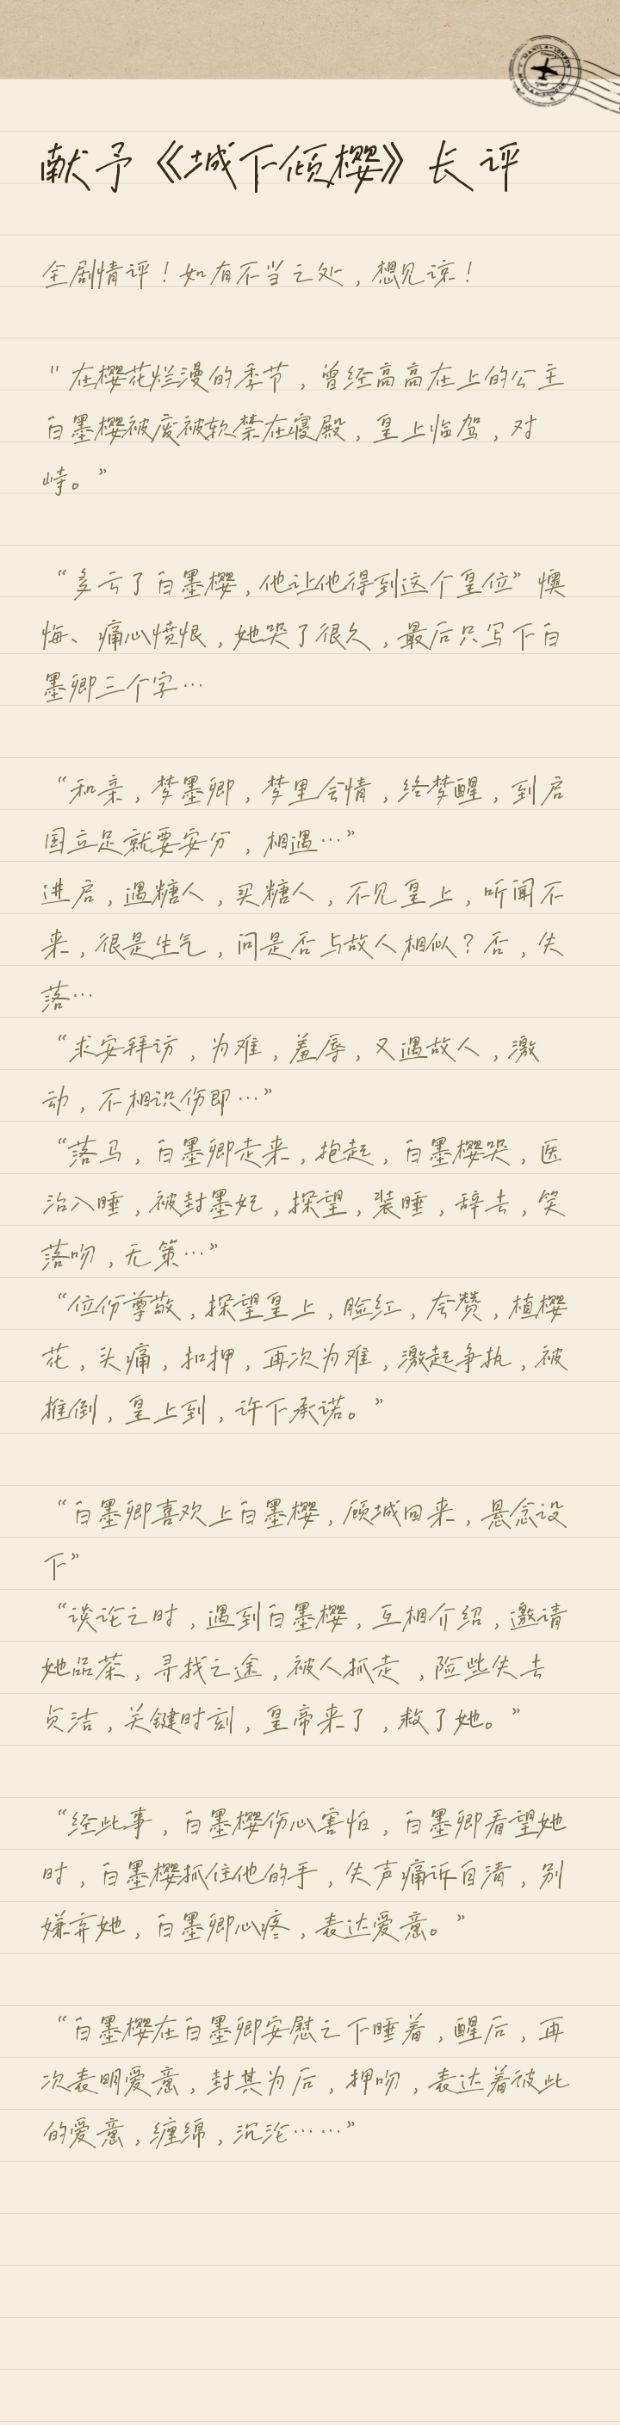 献予《城下倾樱》长评
全剧情评！如有不当之处，想见谅！
"在樱花烂漫的季节，曾经高高在上的公主
白墨樱被废被软禁在寝殿，皇上临驾，对
峙。”
“多亏了白墨樱，他让他得到这个皇位”懊
悔、痛心愤恨，她哭了很久，最后只写下白
墨卿三个字…
“和亲，梦墨卿，梦里含情，终梦醒，到启
国立足就要安分，相遇…”
进启，遇糖人，买糖人，不见皇上，听闻不
来，很是生气，问是否与故人相似？否，失
落…
“求安拜访，为难，羞辱，又遇故人，激
动，不相识伤即…”
“落马，白墨卿走来，抱起，白墨樱哭，医
治入睡，被封墨妃，探望，装睡，辞去，笑
落吻，无策…”
“位份尊敬，探望皇上，脸红，夸赞，植樱
花，头痛，扣押，再次为难，激起争执，被
推倒，皇上到，许下承诺。”
“白墨卿喜欢上白墨樱，顾城回来，悬念设
下”
“谈论之时，遇到白墨樱，互相介绍，邀请
她品茶，寻找之途，被人抓走，险些失去
贞洁，关键时刻，皇帝来了，救了她。”
“经此事，白墨樱伤心害怕，白墨卿看望她
时，白墨樱抓住他的手，失声痛诉自清，别
嫌弃她，白墨卿心疼，表达爱意。”
“白墨樱在白墨卿安慰之下睡着，醒后，再
次表明爱意，封其为后，押吻，表达着彼此
的爱意，缠绵，沉沦……”